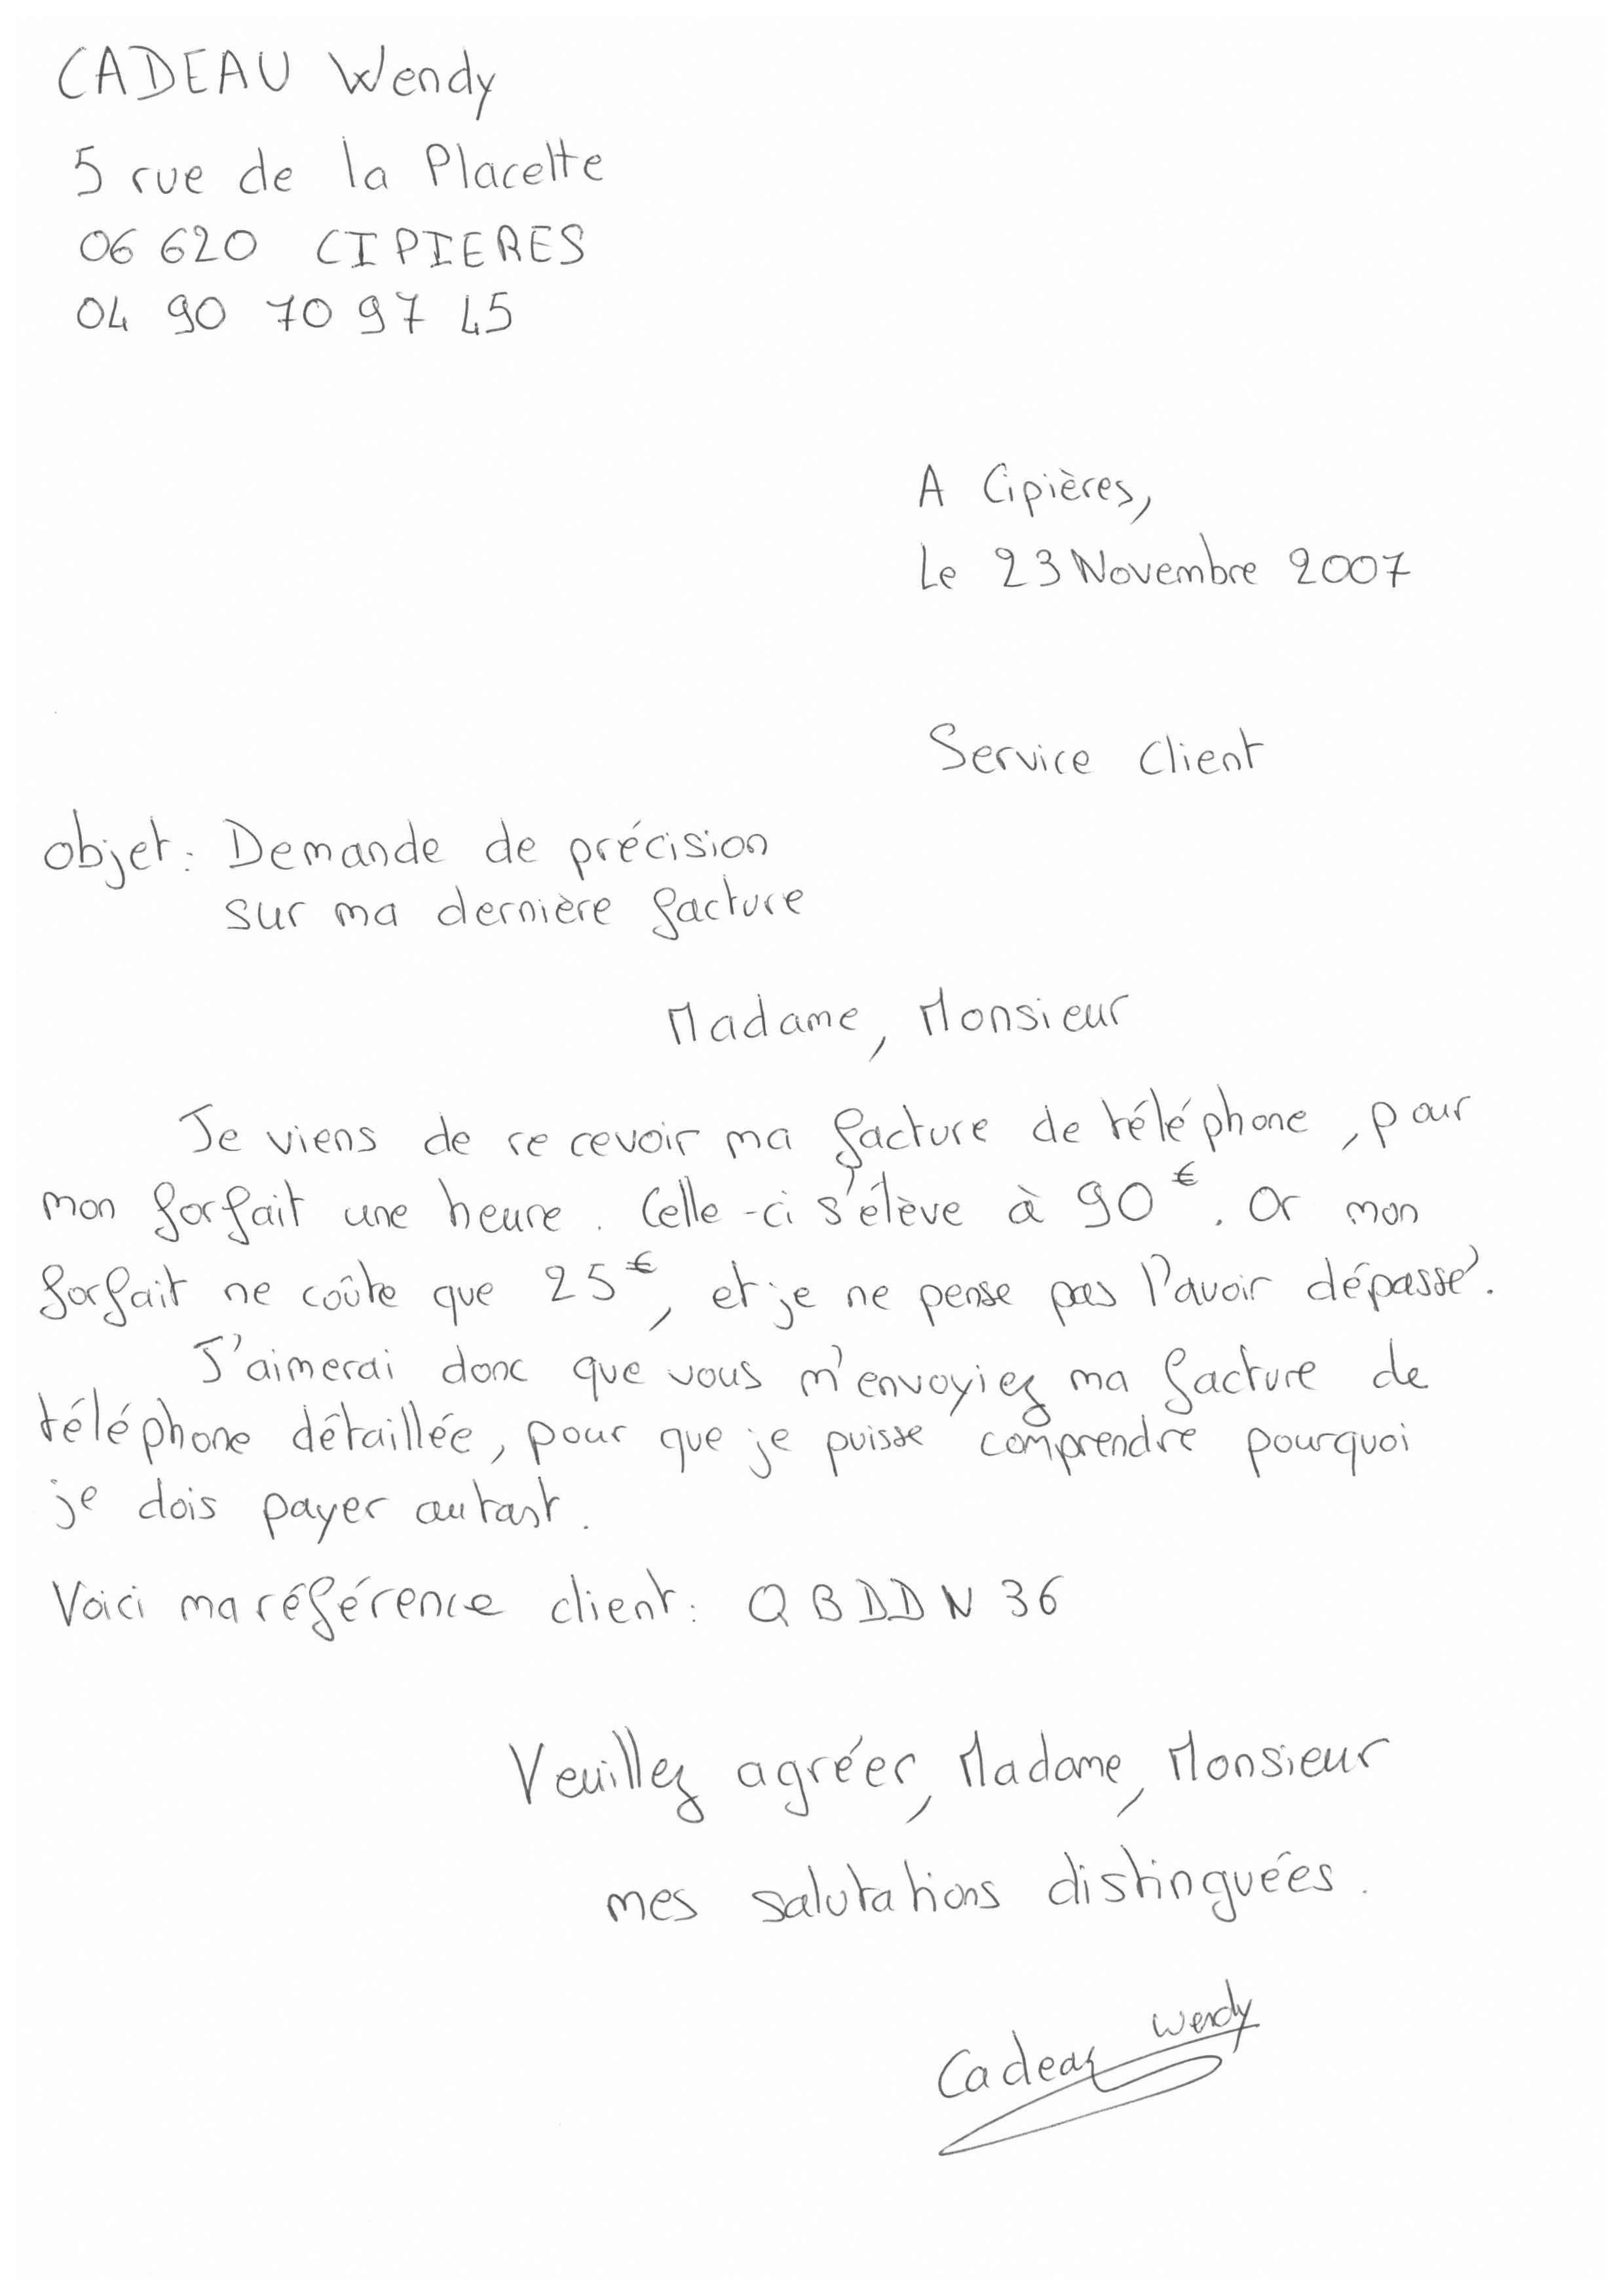 CADEAU Wendy
5 rue de la Placette
06 620 CIPIERES
04 90 70 97 45
A Cipières,
Le 23 Novembre 2007
Service Client
objet : Demande de précision
sur ma dernière facture
Madame, Monsieur
Je viens de recevoir ma facture de téléphone, pour
mon forfait une heure. Celle-ci s'élève à 90€. Or mon
forfait ne coûte que 25€, et je ne pense pas l'avoir dépassé.
J'aimerai donc que vous m'envoyiez ma facture de
téléphone détaillée, pour que je puisse comprendre pourquoi
je dois payer autant.
Voici ma référence client : QBDDN36
Veuillez agréer, Madame, Monsieur
mes salutations distinguées.
Cadeau Wendy